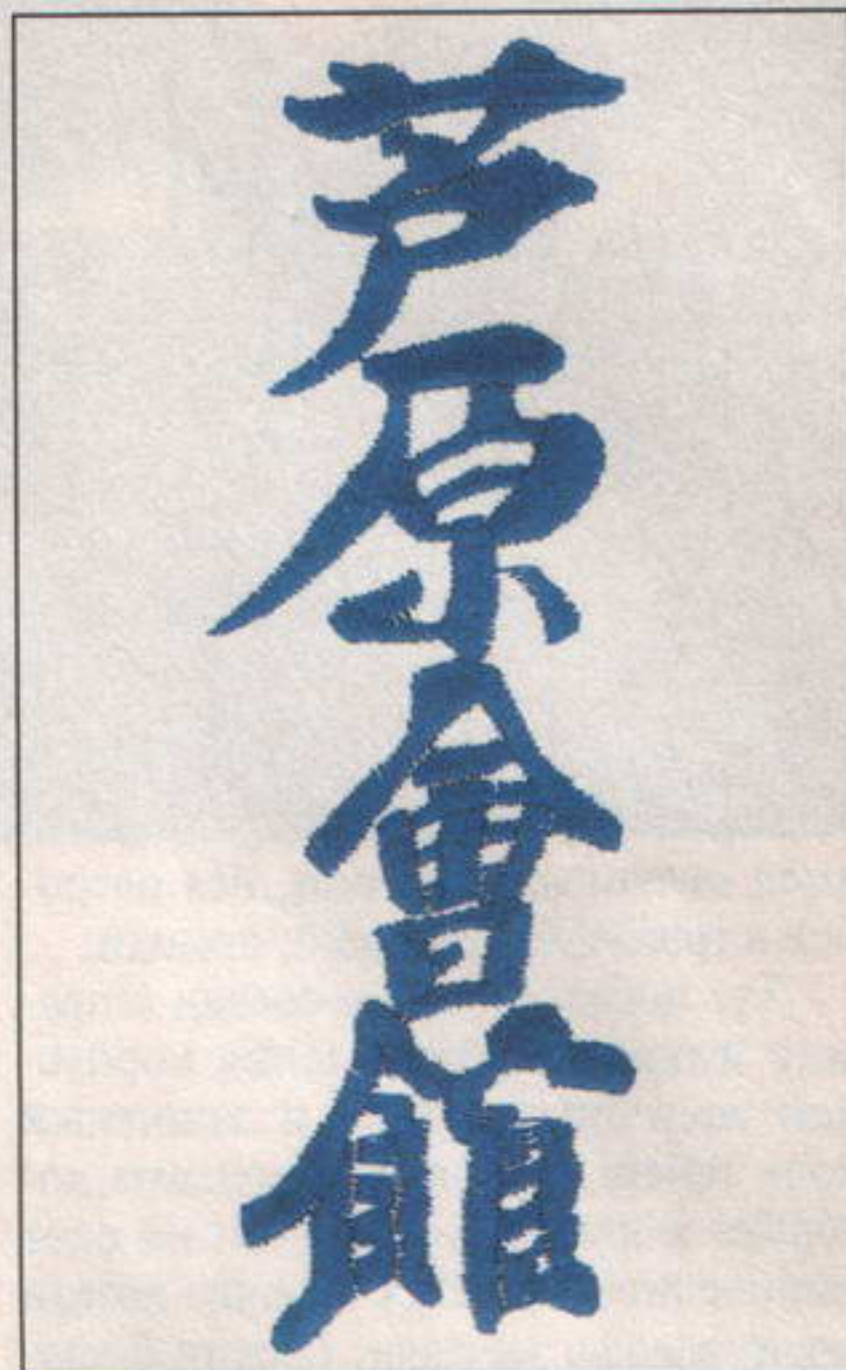 芦原會館